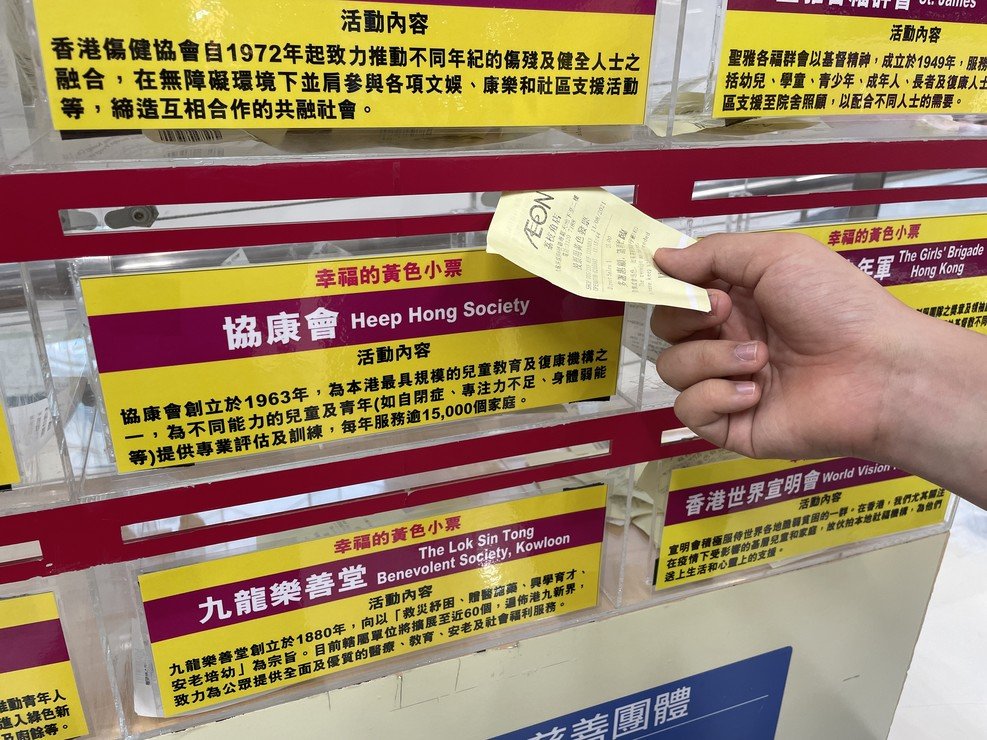 活動內容
香港傷健協會自1972年起致力推動不同年紀的傷殘及健全人士之
融合，在無障礙環境下並肩參與各項文娛、康樂和社區支援活動
等，締造互相合作的共融社會。
St. James'
活動內容
聖雅各福群會以基督精神，成立於1949年，服務
括幼兒、學童、青少年、成年人、長者及復康人士
區支援至院舍照顧，以配合不同人士的需要。
ÆON
幸福的黃色小票
協康會 Heep Hong Society
活動內容
協康會創立於1963年，為本港最具規模的兒童教育及復康機構之
一，為不同能力的兒童及青年(如自閉症、專注力不足、身體弱能
等)提供專業評估及訓練，每年服務逾15,000個家庭。
幸福的黃色小票
年軍 The Girls' Brigade
Hong Kong
幸福的黃色小票
九龍樂善堂 The Lok Sin Tong
Benevolent Society, Kowloon
活動內容
九龍樂善堂創立於1880年，向以「救災紓困、贈醫施藥、興學育才、
安老培幼」為宗旨。目前轄屬單位將擴展至近60個，遍佈港九新界，
致力為公眾提供全面及優質的醫療、教育、安老及社會福利服務。
香港世界宣明會 World Vision
活動內容
宣明會積極服侍世界各地脆弱貧困的一群。在香港，我們尤其關注
在疫情下受影響的基層兒童和家庭，故伙拍本地社福機構，為他們
送上生活和心靈上的支援。
推動青年人
進入綠色新
及廚餘等。
慈善團體